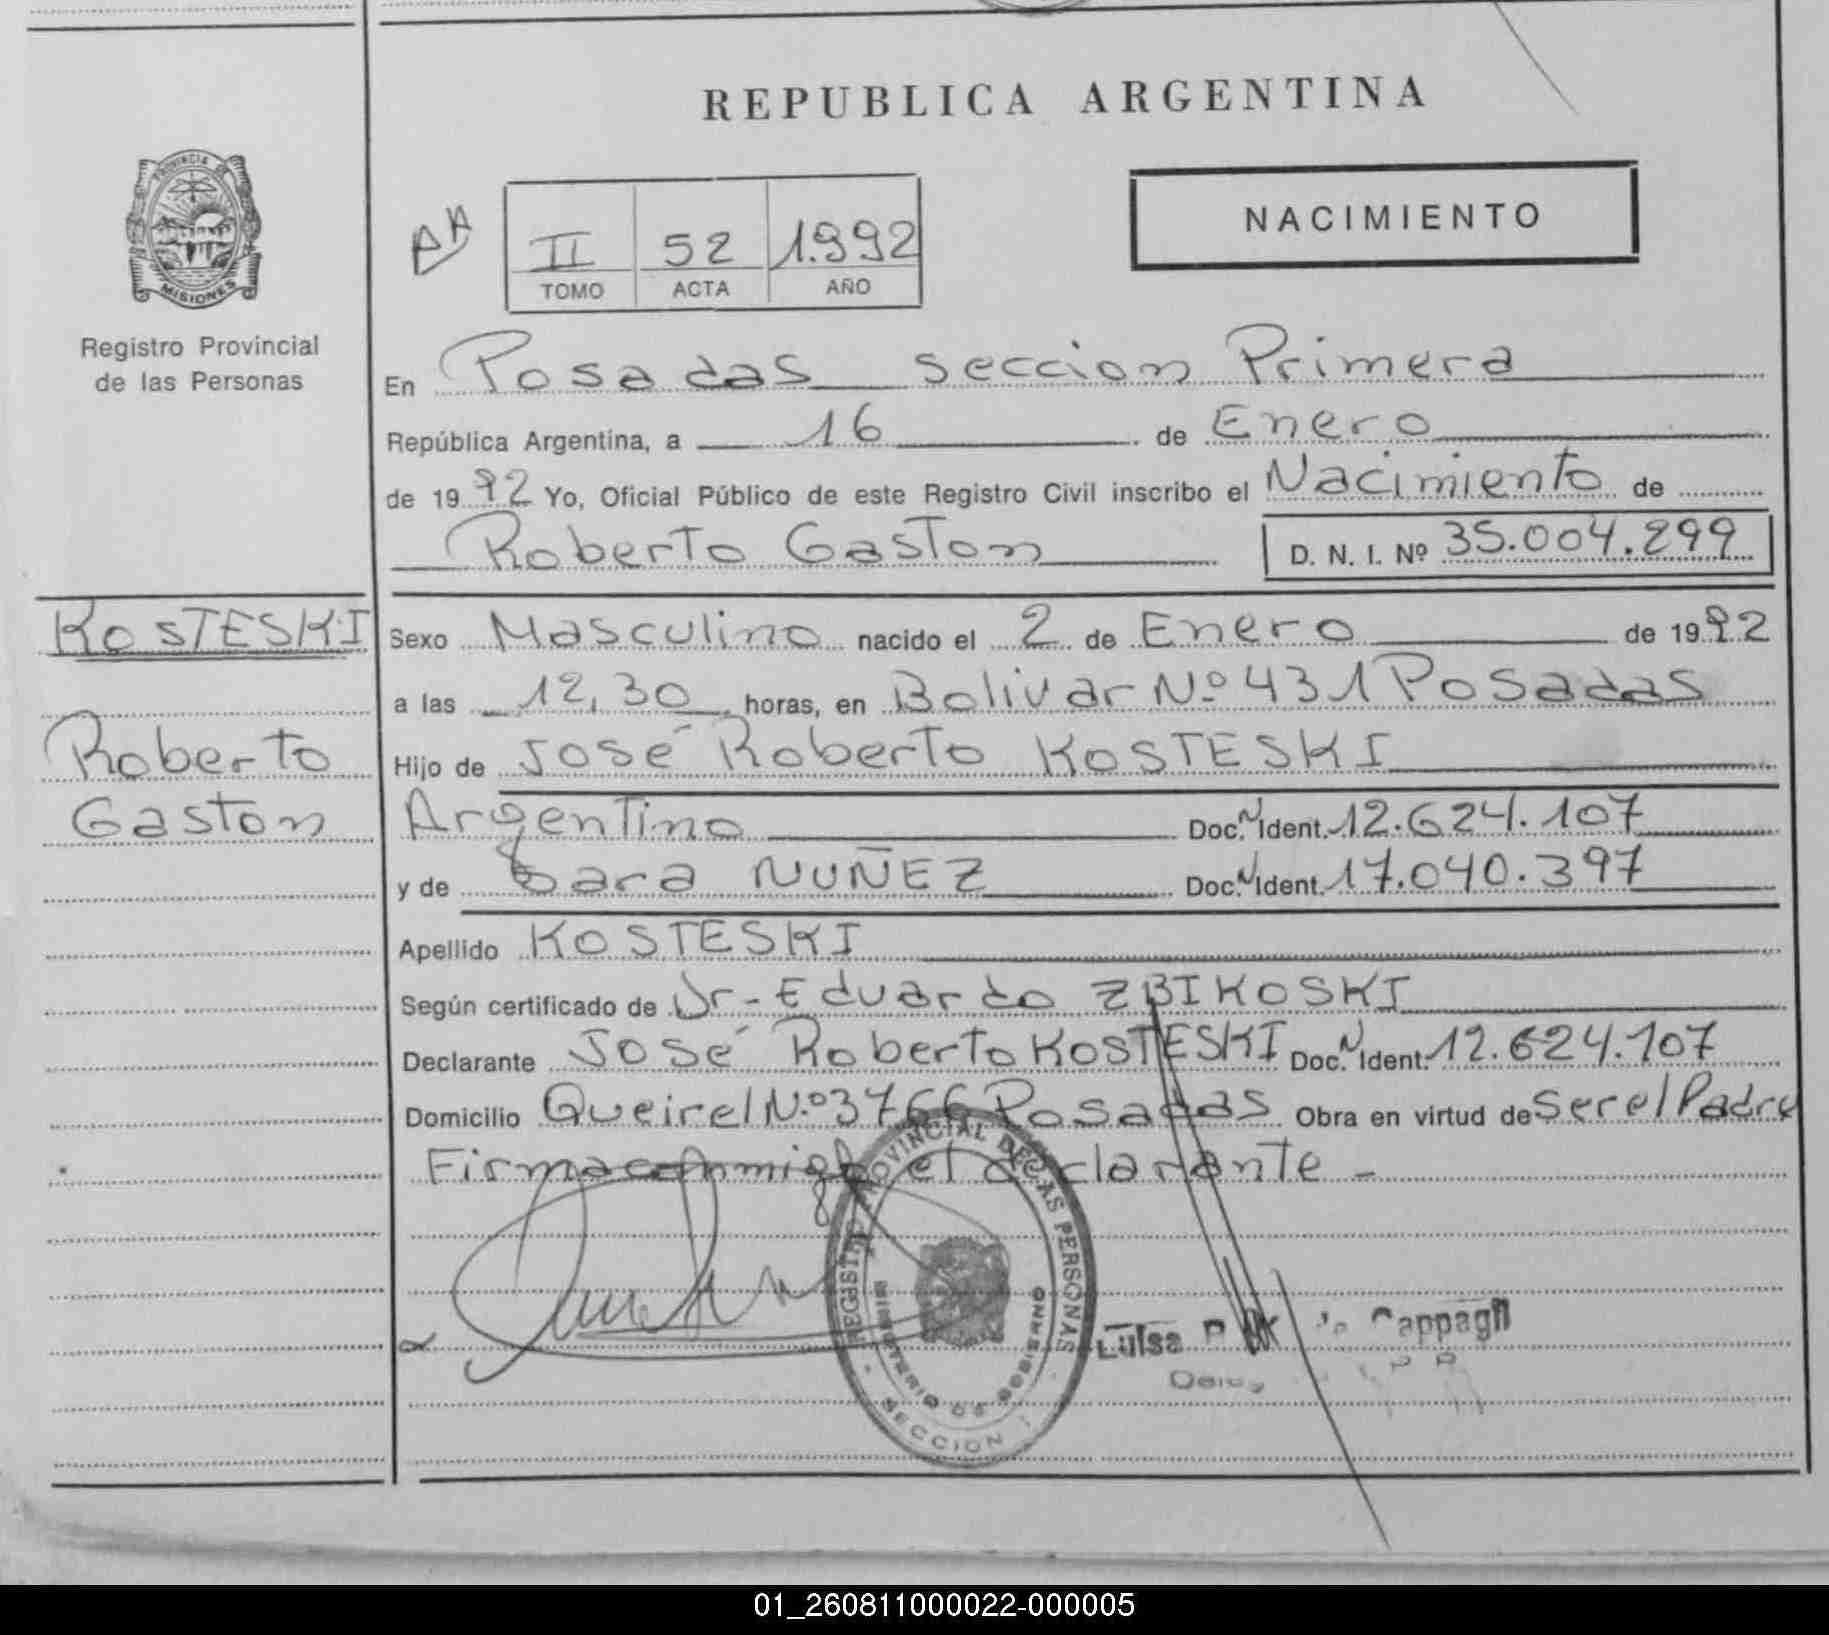 REPUBLICA ARGENTINA
PROVINCIA
MISIONES
Registro Provincial
de las Personas
II 52 1.992
TOMO ACTA AÑO
NACIMIENTO
En Posadas seccion Primera
República Argentina, a 16 de Enero
de 1992 Yo, Oficial Público de este Registro Civil inscribo el Nacimiento de
Roberto Gaston D. N. I. Nº 35.004.299
KOSTESKI
Roberto
Gaston
Sexo Masculino nacido el 2 de Enero de 1992
a las 12,30 horas, en Bolivar Nº 431 Posadas
Hijo de José Roberto KOSTESKI
Argentino Doc. N Ident. 12.624.107
y de Sara NUÑEZ Doc. N Ident. 17.040.397
Apellido KOSTESKI
Según certificado de Dr. Eduardo ZBIKOSKI
Declarante José Roberto KOSTESKI Doc. N Ident. 12.624.107
Domicilio Queirel Nº 3766 Posadas Obra en virtud de ser el Padre
Firma conmigo el declarante -
REGISTRO PROVINCIAL DE LAS PERSONAS
MINISTERIO DE GOBIERNO
SECCION
Luisa
01_260811000022-000005